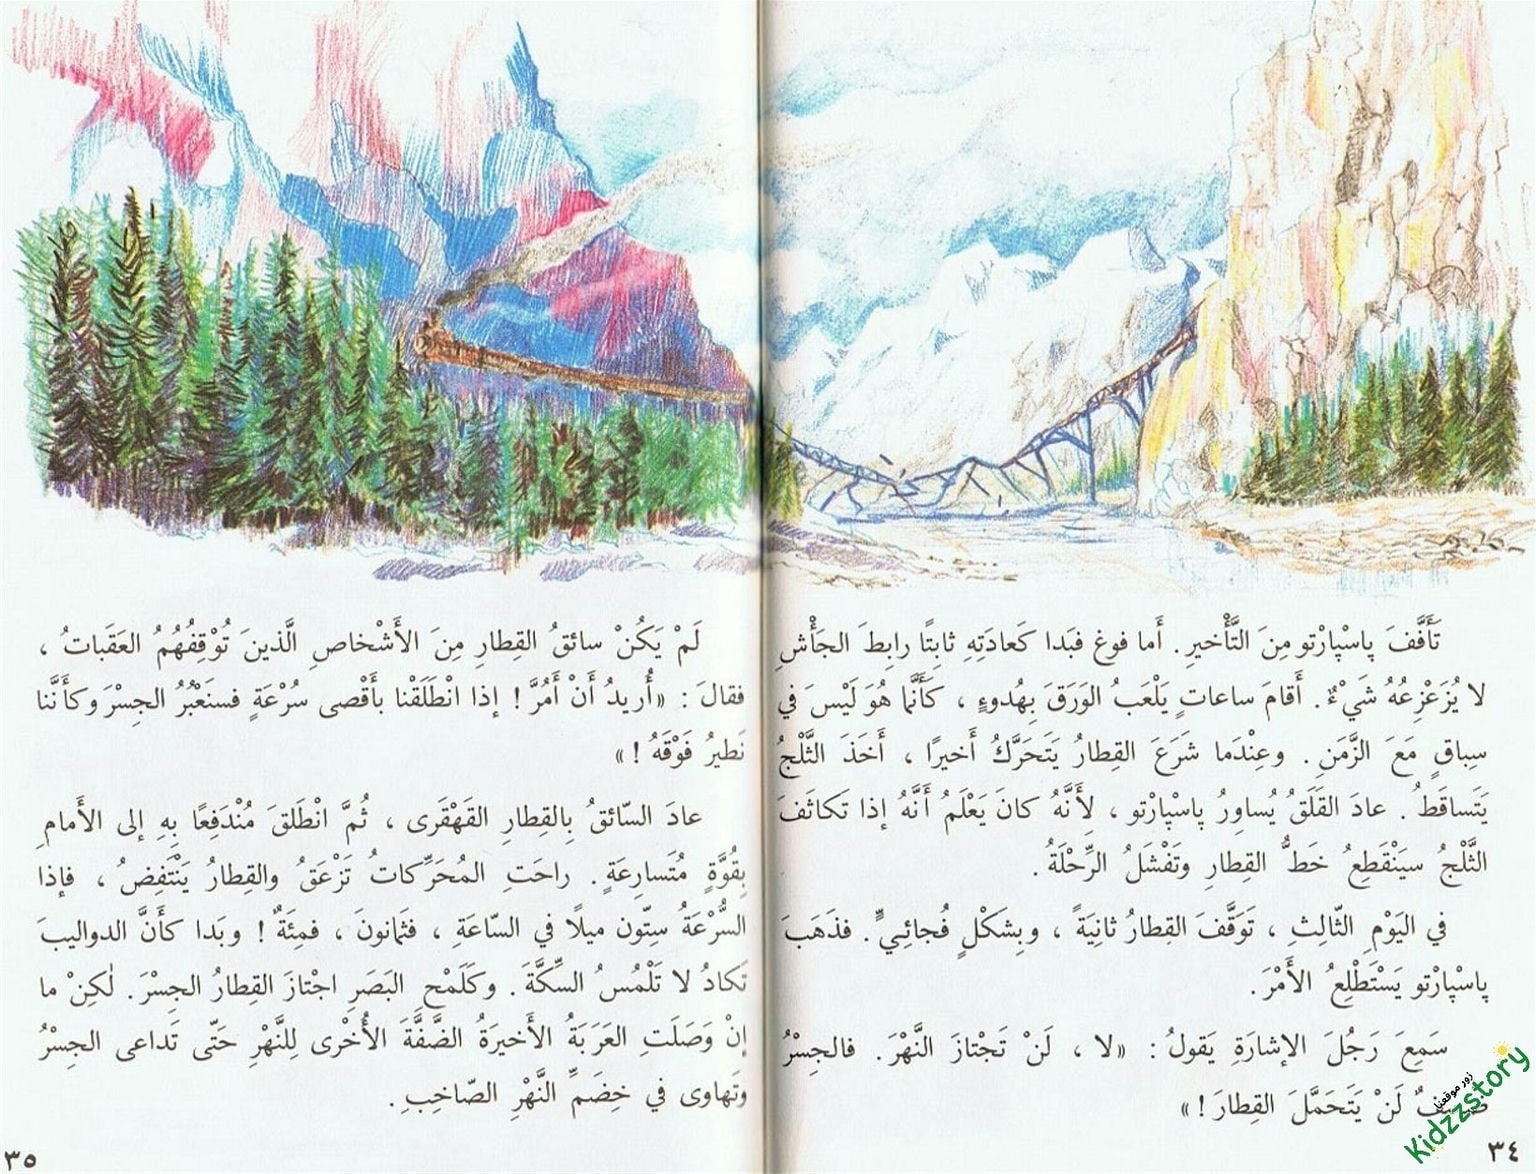 تَأَفَّفَ پاسْپارْتو مِنَ التَّأْخيرِ. أَما فوغ فبَدا كَعادَتِهِ ثابِتًا رابِطَ الجَأْشِ
لا يُزَعْزِعُهُ شَيْءٌ. أَقامَ ساعاتٍ يَلْعَبُ الوَرَقَ بِهُدوءٍ ، كَأَنَّما هُوَ لَيْسَ في
سِباقٍ مَعَ الزَّمَنِ. وعِنْدَما شَرَعَ القِطارُ يَتَحَرَّكُ أَخيرًا ، أَخَذَ الثَّلْجُ
يَتَساقَطُ. عادَ القَلَقُ يُساوِرُ پاسْپارْتو ، لِأَنَّهُ كانَ يَعْلَمُ أَنَّهُ إذا تَكاثَفَ
الثَّلْجُ سيَنْقَطِعُ خَطُّ القِطارِ وتَفْشَلُ الرِّحْلَةُ.
في اليَوْمِ الثّالِثِ ، تَوَقَّفَ القِطارُ ثانِيَةً ، وبِشَكْلٍ فُجائِيٍّ. فذَهَبَ
پاسْپارْتو يَسْتَطْلِعُ الأَمْرَ.
سَمِعَ رَجُلَ الإشارَةِ يَقولُ : «لا ، لَنْ تَجْتازَ النَّهْرَ. فالجِسْرُ
لَنْ يَتَحَمَّلَ القِطارَ!»
٣٤
زور موقعنا
Kidzzstory
لَمْ يَكُنْ سائقُ القِطارِ مِنَ الأَشْخاصِ الَّذينَ تُوْقِفُهُمُ العَقَباتُ ،
فقالَ : «أُريدُ أَنْ أَمُرَّ! إذا انْطَلَقْنا بِأَقْصى سُرْعَةٍ فسنَعْبُرُ الجِسْرَ وكأَنَّنا
نَطيرُ فَوْقَهُ!»
عادَ السّائقُ بِالقِطارِ القَهْقَرى ، ثُمَّ انْطَلقَ مُنْدَفِعًا بِهِ إلى الأَمامِ
بِقُوَّةٍ مُتَسارِعَةٍ. راحَتِ المُحَرِّكاتُ تَزْعَقُ والقِطارُ يَنْتَفِضُ ، فإذا
السُّرْعَةُ سِتّون ميلًا في السّاعَةِ ، فثَمانونَ ، فمِئَةٌ! وبَدا كَأَنَّ الدواليبَ
تَكادُ لا تَلْمُسُ السِّكَّةَ. وكَلَمْحِ البَصَرِ اجْتازَ القِطارُ الجِسْرَ. لٰكِنْ ما
إنْ وَصَلَتِ العَرَبَةُ الأَخيرَةُ الضَّفَّةَ الأُخْرى لِلنَّهْرِ حَتّى تَداعى الجِسْرُ
وتَهاوى في خِضَمِّ النَّهْرِ الصّاخِبِ.
٣٥